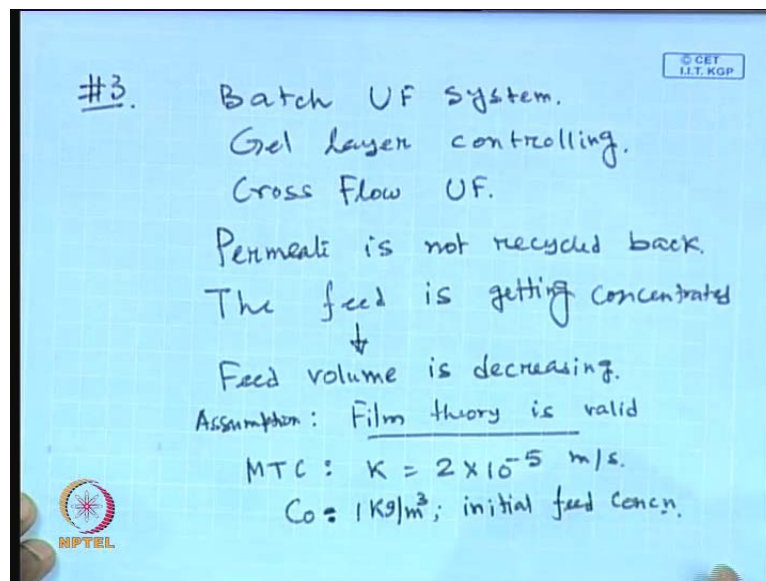 © CET
I.I.T. KGP
#3. Batch UF System.
Gel Layer controlling.
Cross Flow UF.
Permeate is not recycled back.
The feed is getting concentrated
↓
Feed volume is decreasing.
Assumption: Film theory is valid
MTC : K = 2 × 10⁻⁵ m/s.
Co = 1 Kg/m³; initial feed Concn.
NPTEL